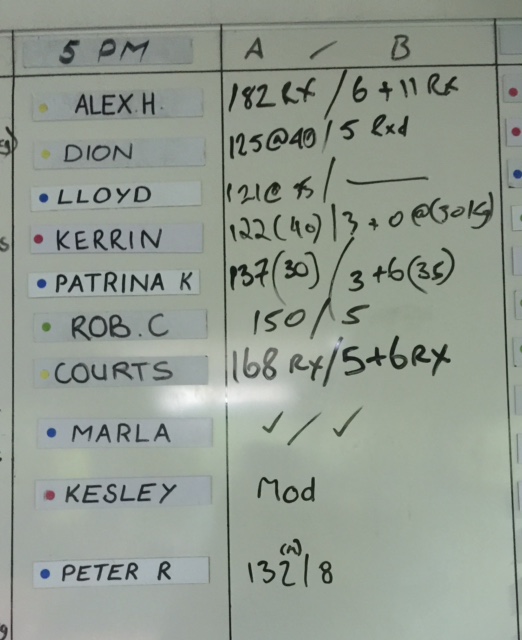 5 PM A / B
ALEX.H. 182 Rx / 6 + 11 Rx
DION 125@40 / 5 Rxd
LLOYD 121@ / —
KERRIN 122(40) / 3 + 0 @(30kg)
PATRINA K 137(30) / 3+6(35)
ROB.C 150 / 5
COURTS 168 Rx / 5+6 Rx
MARLA ✓ / ✓
KESLEY Mod
PETER R 132 / 8